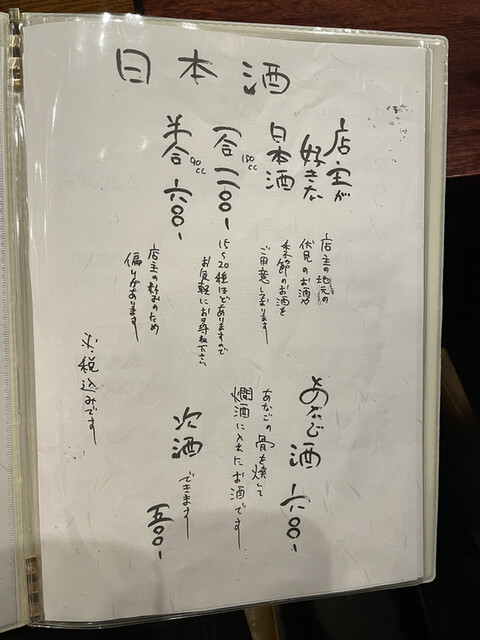 日本酒
店主が
好きな
日本酒
一合 180cc 一一〇〇-
半合 90cc 六〇〇-
店主の地元の
伏見のお酒や
季節のお酒を
ご用意しております
15~20種ほどありますので
お気軽にお尋ね下さい
店主の好みのため
偏りがあります
あなご酒 六〇〇-
あなごの骨を焼いて
燗酒に入れたお酒です
次酒 できます 五〇〇-
税込みです